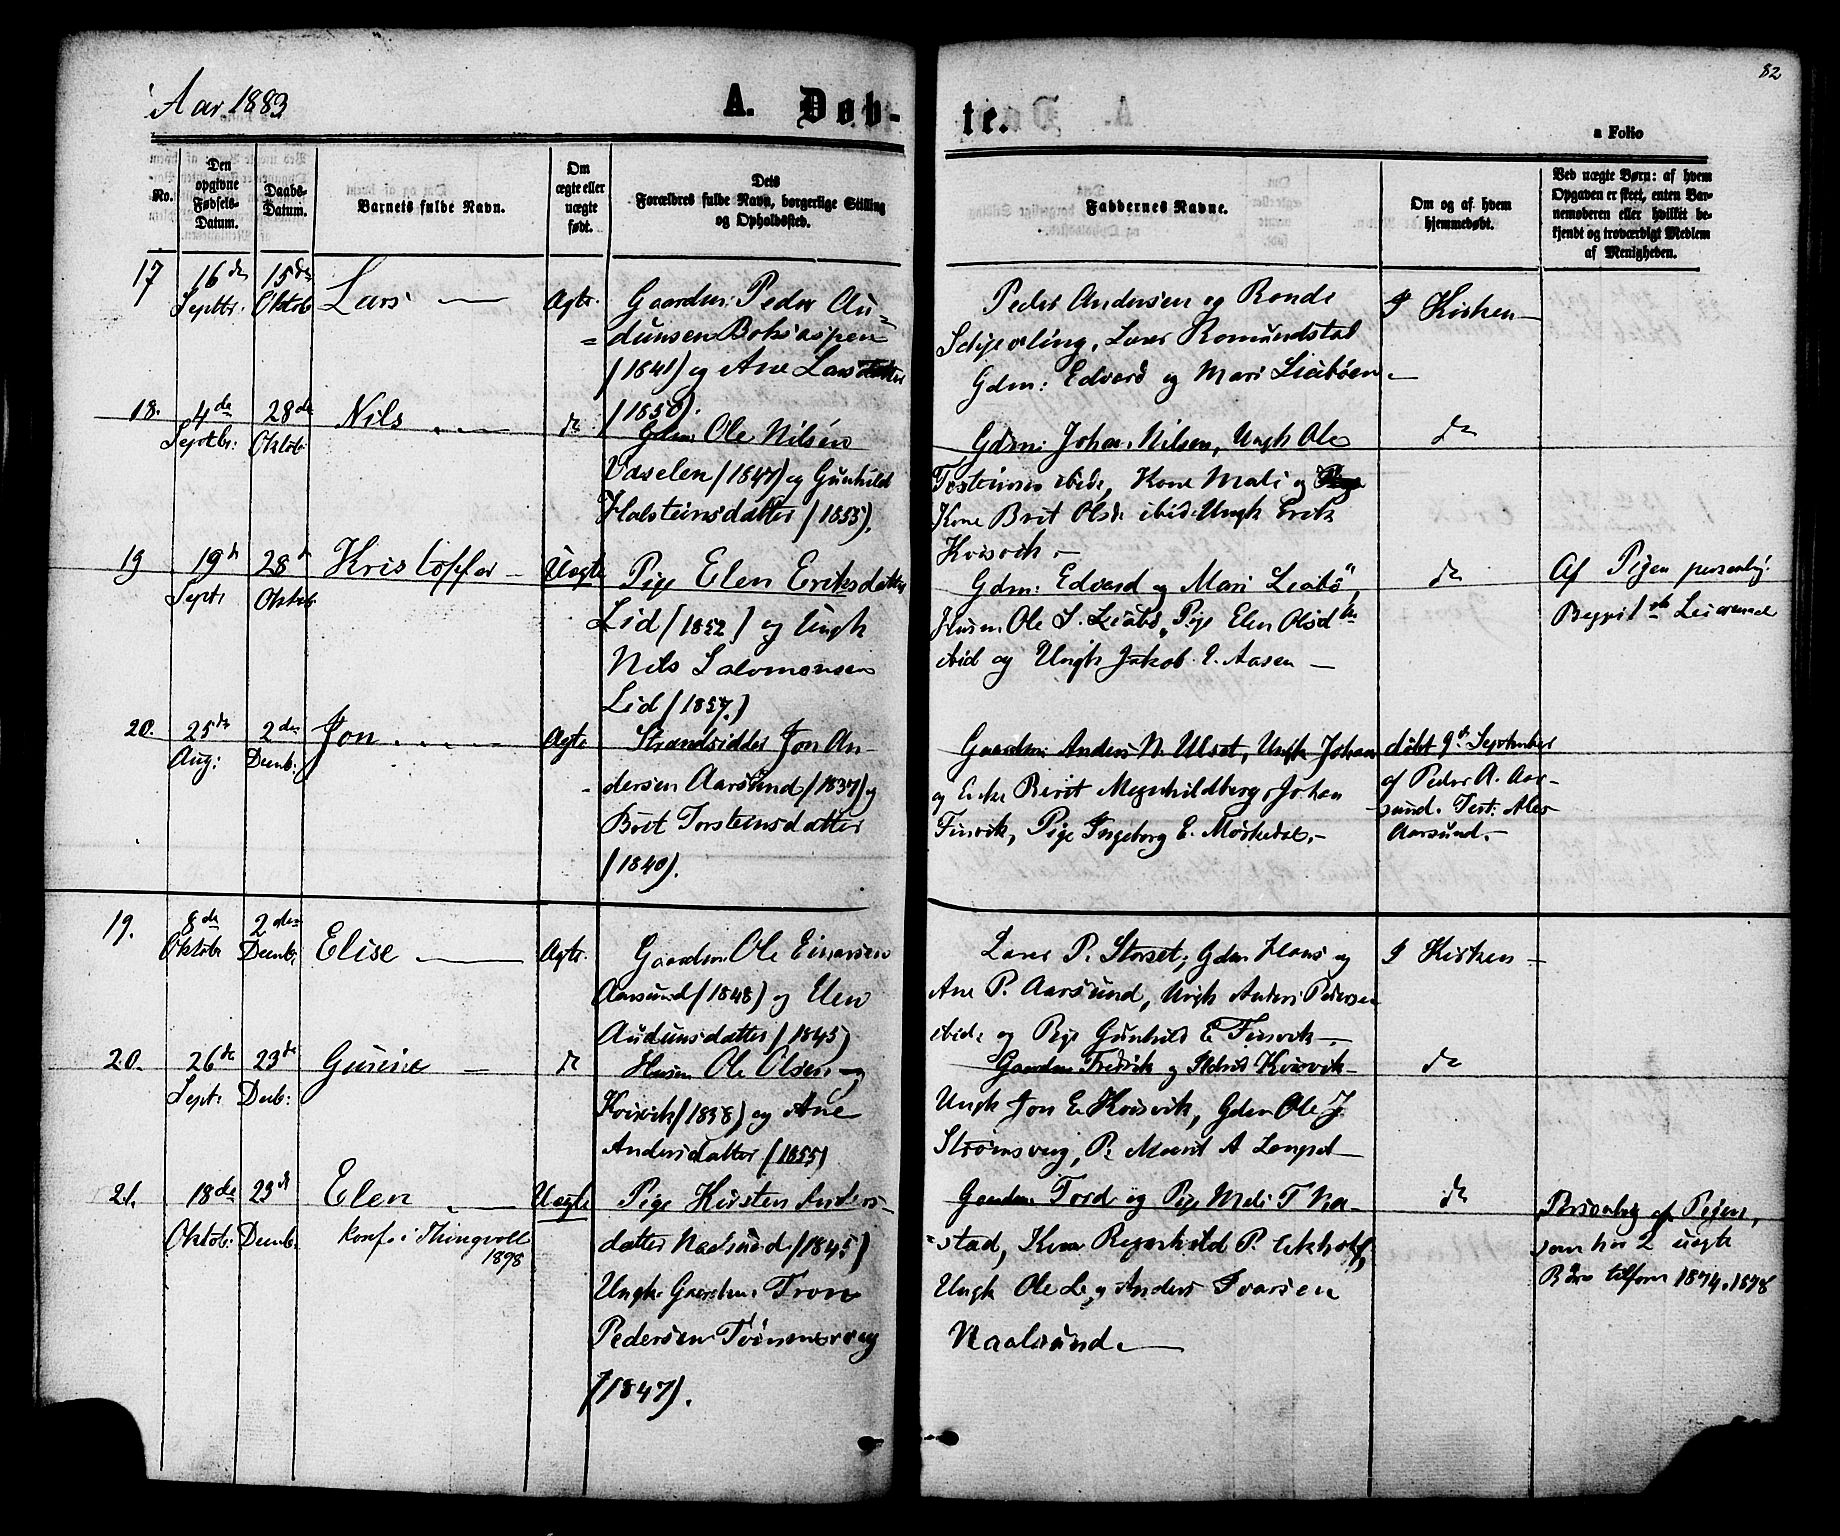 82
Aar 1883
A. Døb-
te.
a Folio
No.
Den
opgivne
Fødsels-
Datum.
Daabs-
Datum.
Barnets fulde Navn.
Om
ægte eller
uægte
født.
Dets
Forældres fulde Navn, borgerlige Stilling
og Opholdssted.
Faddernes Navne.
Om og af hvem
hjemmedøbt.
Ved uægte Børn: af hvem
Opgaven er skeet, enten Bar-
nemoderen eller hvilket be-
kjendt og troværdigt Medlem
af Menigheden.
17
16de
Septbr.
15de
Oktob
Lars
Ægte.
Gaardm. Peder Au-
dunsen Boksaspen
(1841) og Ane Larsdatter
(1850).
Peder Andersen og
Lars Romundstad
Gdm: Edvard og Mari Liabøen
I Kirken
18.
4de
Septbr:
28de
Oktob
Nils
do
Gdm. Ole Nilsen
Vaselen (1847) og Gunhild
Halsteinsdatter (1853).
Gdm: Johan Nilsen, Ungk Ole
ibid, Kone Mali og
Kone Brit Olsd ibid. Ungk Erik
Kvisvik
do
19
19de
Septr
28de
Oktob:
Kristoffer
Uægte
Pige Elen Eriksdatter
Lid (1852) og Ungk
Nils Salomonsen
Lid (1857.)
Gdm: Edvard og Mari Liabø,
Husm. Ole L. Liabø, Pige Elen Olsdtr
ibid og Ungk Jakob E. Aasen
do
Af Pigen personlig
20.
25de
Aug:
2den
Decemb:
Jon
Ægte
Strandsidder Jon An-
dersen Aarsund (1837) og
Brit Torsteinsdatter
(1840).
Gaardm: Anders N. Ulset, Ungk Johan
og Enke Berit Megenhildberg, Johan
Finvik, Pige Ingeborg E. Mørkedal.
døbt 9de September
af Peder A. Aar-
sund. Test:
Aarsund.
19.
8de
Oktob:
2den
Decemb:
Elise
Ægte.
Gaardm. Ole Einarsen
Aarsund (1848) og Elen
Audunsdatter (1845)
Lars P. Storset, Gdm Hans og
Ane P. Aarsund, Ungk Anders Pedersen
ibid og Pige Gunhild E Finvik.
I Kirken
20.
26de
Septr
23de
Decb:
Gurine
do
Husm Ole Olsen
Kvisvik (1838) og Ane
Andersdatter (1855)
Gaardm Fredrik og Kvisvik
Ungk Jon E. Kvisvik, Gdm Ole J.
Strømsvaag, P. Marit A
do
21.
18de
Oktob:
23de
Decemb:
Elen
Konf. i Thingvoll
1898
Uægte
Pige Kirsten Anders-
datter Naalsund (1845)
Ungk. Gaardm. Tron
Pedersen Tømmervaag
(1847).
Gaardm. Tord og Pige Mali T Na-
stad, Kone Regnhild P. Ekholt,
Ungk Ole L. og Anders Ivarsen
Naalsund.
do
Personlig af Pigen,
som har 2 uægte
Børn tilforn 1874. 1878